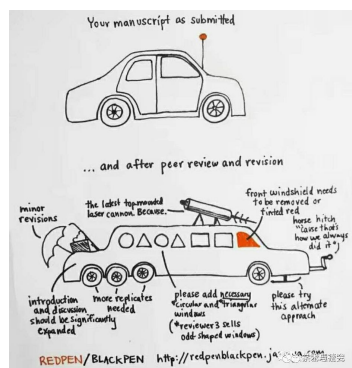 Your manuscript as submitted
... and after peer review and revision
minor
revisions
the latest top mounted
laser cannon. Because.
front windshield needs
to be removed or
tinted red
horse hitch
"cause that's
how we always
did it"
introduction
and discussion
should be significantly
expanded
more replicates
needed
please add necessary
*circular and triangular
windows
(*reviewer 3 sells
odd shaped windows)
please try
this alternate
approach
REDPEN/BLACKPEN http://redpenblackpen.